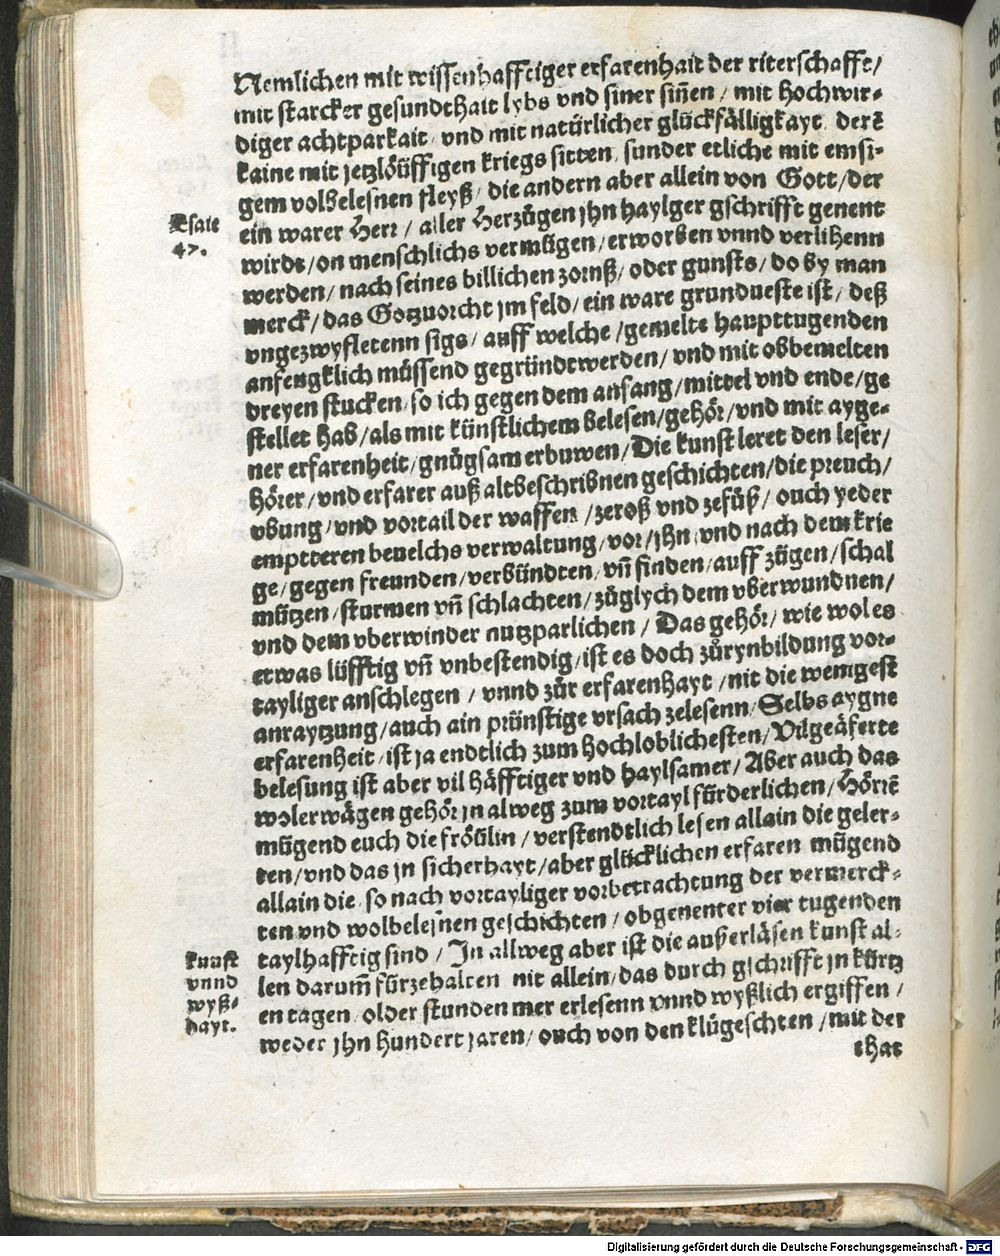 Nemlichen mit wissenhafftiger erfarenhait der riterschafft/
mit starcker gesundthait lybs vnd siner siñen / mit hochwir⸗
diger achtparkait / vnd mit natürlicher glückfälligkayt / derẽ
kaine mit jetzlöüffigen kriegs sitten / sunder etliche mit emsi⸗
gem volbelesnen fleyß / die andern aber allein von Gott / der
Esaie
47.
ein warer Herr / aller Herzügen jhn haylger gschrifft genent
wirdt / on menschlichs vermügen / erworben vnnd verlihenn
werden / nach seines billichen zornß / oder gunsts / do by man
merck / das Gotzuorcht jm feld / ein ware grundueste ist / deß
vngezwyfletenn sigs / auff welche / gemelte haupttugenden
anfengklich müssend gegründt werden / vnd mit obbemelten
dreyen stucken / so ich gegen dem anfang / mittel vnd ende / ge
stellet hab / als mit künstlichem belesen / gehör / vnd mit ayge⸗
ner erfarenheit / gnügsam erbuwen / Die kunst leret den leser /
hörer / vnd erfarer auß altbeschribnen geschichten / die preuch /
vbung / vnd vortail der waffen / zeroß vnd zefüß / ouch yeder
emptteren beuelchs verwaltung / vor / jhn / vnd nach dem krie
ge / gegen freunden / verbündten / vñ finden / auff zügen / schal
mützen / sturmen vñ schlachten / züglych dem vberwundnen /
vnd dem vberwinder nutzparlichen / Das gehör / wie wol es
etwas lüfftig vñ vnbestendig / ist es doch zür ynbildung vor⸗
tayliger anschlegen / vnnd zür erfarenhayt / nit die wenigest
anraytzung / auch ain prünstige vrsach zelesenn / Selbs aygne
erfarenheit / ist ja endtlich zum hochloblichesten / Vilgeäferte
belesung ist aber vil häfftiger vnd haylsamer / Aber auch das
wolerwägen gehör jn alweg zum vortayl fürderlichen / Hörrẽ
mügend euch die fröülin / verstendtlich lesen allain die geler⸗
ten / vnd das jn sicherhayt / aber glücklichen erfaren mügend
allain die / so nach vortayliger vorbetrachtung der vermerck⸗
ten vnd wolbelesnen geschichten / obgenenter vier tugenden
kunst
vnnd
wyß⸗
hayt.
taylhafftig sind / In allweg aber ist die außerläsen kunst al⸗
len darum̃ fürzehalten / nit allein / das durch gschrifft jn kürtz
en tagen / older stunden mer erlesenn vnnd wyßlich ergiffen /
weder jhn hundert jaren / ouch von den klügeschten / mit der
that
Digitalisierung gefördert durch die Deutsche Forschungsgemeinschaft - DFG